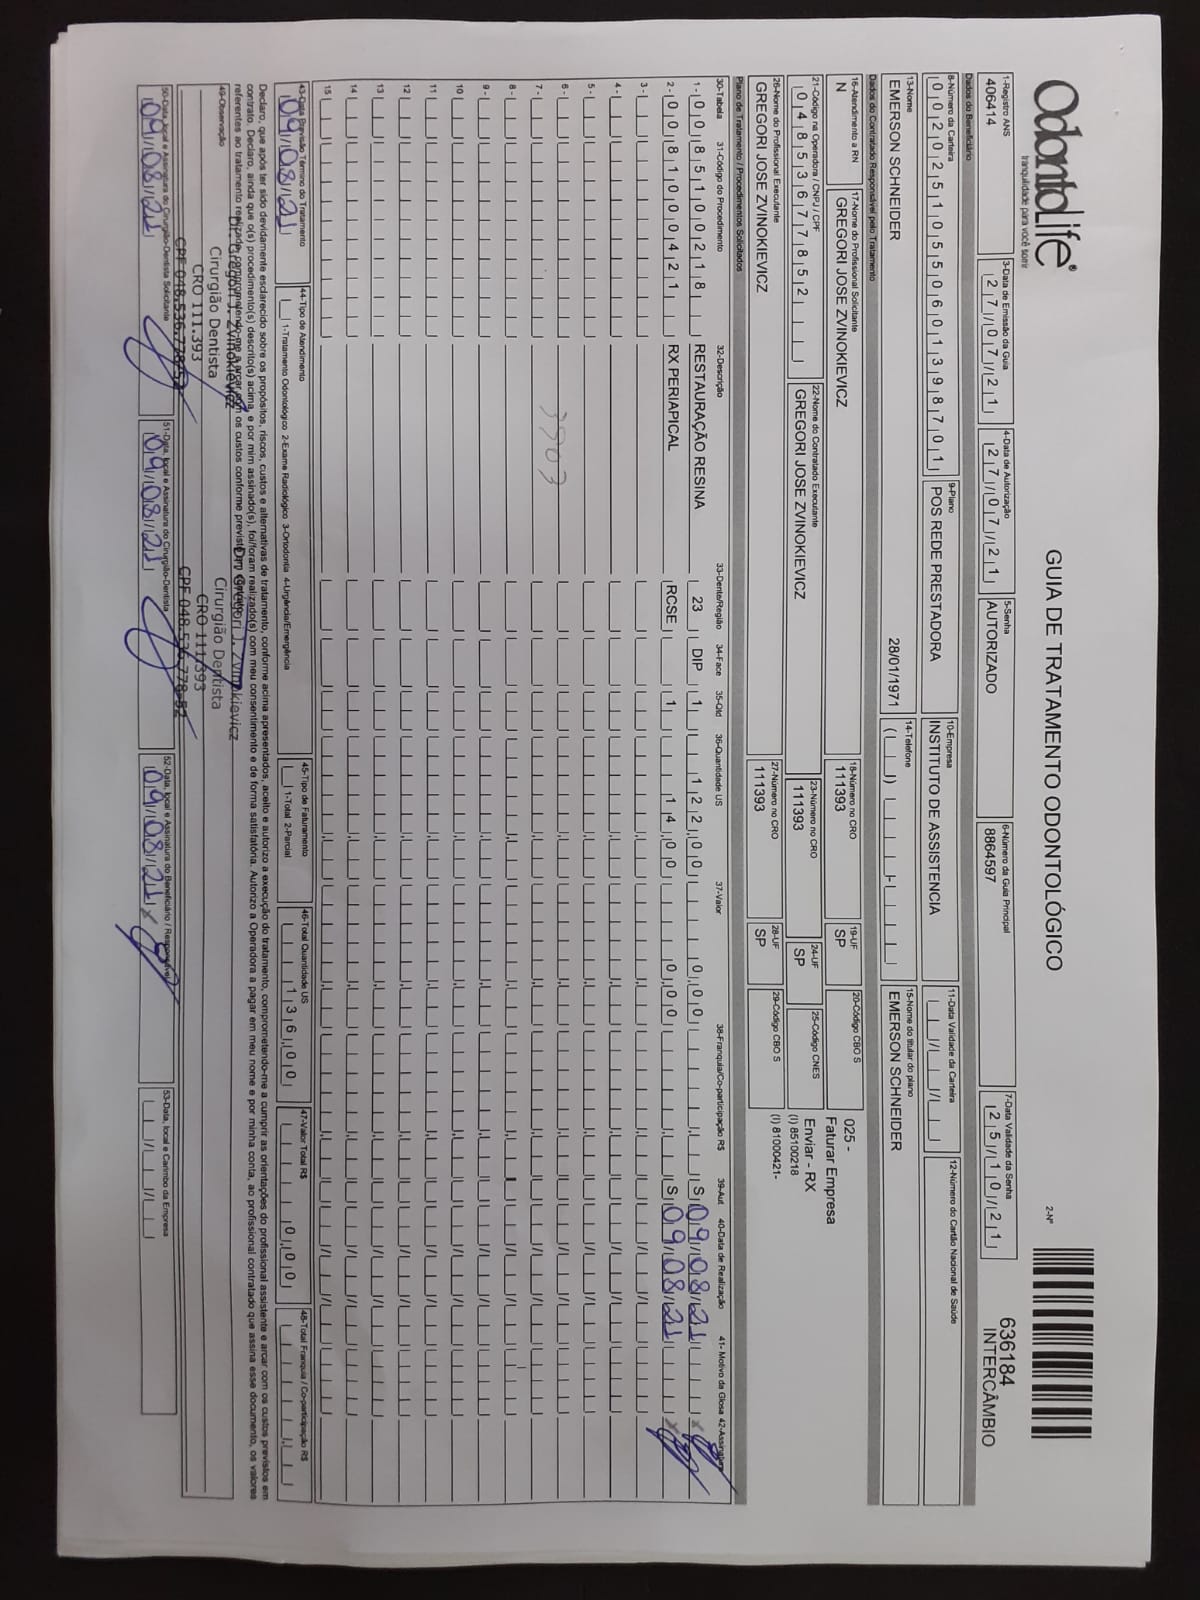 OdontoLife®
tranquilidade para você sorrir
GUIA DE TRATAMENTO ODONTOLÓGICO
2-Nº
636184
INTERCÂMBIO
1-Registro ANS
406414
3-Data de Emissão da Guia
27/07/21
4-Data de Autorização
27/07/21
5-Senha
AUTORIZADO
6-Número da Guia Principal
8864597
7-Data Validade da Senha
25/10/21
Dados do Beneficiário
8-Número da Carteira
00202510550601398701
9-Plano
POS REDE PRESTADORA
10-Empresa
INSTITUTO DE ASSISTENCIA
11-Data Validade da Carteira
12-Número do Cartão Nacional de Saúde
13-Nome
EMERSON SCHNEIDER
28/01/1971
14-Telefone
15-Nome do titular do plano
EMERSON SCHNEIDER
Dados do Contratado Responsável pelo Tratamento
16-Atendimento a RN
N
17-Nome do Profissional Solicitante
GREGORI JOSE ZVINOKIEVICZ
18-Número no CRO
111393
19-UF
SP
20-Código CBO S
025 -
Faturar Empresa
21-Código na Operadora / CNPJ / CPF
04853677852
22-Nome do Contratado Executante
GREGORI JOSE ZVINOKIEVICZ
23-Número no CRO
111393
24-UF
SP
25-Código CNES
Enviar - RX
(I) 85100218
26-Nome do Profissional Executante
GREGORI JOSE ZVINOKIEVICZ
27-Número no CRO
111393
28-UF
SP
29-Código CBO S
(I) 81000421-
Plano de Tratamento / Procedimentos Solicitados
30-Tabela 31-Código do Procedimento 32-Descrição 33-Dente/Região 34-Face 35-Qtd 36-Quantidade US 37-Valor 38-Franquia/Co-participação R$ 39-Aut 40-Data de Realização 41- Motivo da Glosa 42-Assinatura
1- 00 85100218 RESTAURAÇÃO RESINA 23 DIP 1 122,00 0,00 S 09/08/21
2- 00 81000421 RX PERIAPICAL RCSE 1 14,00 0,00 S 09/08/21
3-
4-
5-
6-
7-
8-
9-
10
11
12
13
14
15
43-Data Previsão Término do Tratamento
09/08/21
44-Tipo de Atendimento
1-Tratamento Odontológico 2-Exame Radiológico 3-Ortodontia 4-Urgência/Emergência
45-Tipo de Faturamento
1-Total 2-Parcial
46-Total Quantidade US
136,00
47-Valor Total R$
0,00
48-Total Franquia / Co-participação R$
Declaro, que após ter sido devidamente esclarecido sobre os propósitos, riscos, custos e alternativas de tratamento, conforme acima apresentados, aceito e autorizo a execução do tratamento, comprometendo-me a cumprir as orientações do profissional assistente e arcar com os custos previstos em
contrato. Declaro, ainda que o(s) procedimento(s) descrito(s) acima, e por mim assinado(s), foi/foram realizado(s) com meu consentimento e de forma satisfatória. Autorizo a Operadora a pagar em meu nome e por minha conta, ao profissional contratado que assina esse documento, os valores
referentes ao tratamento realizado, comprometendo-me a arcar com os custos conforme previsto em contrato.
49-Observação
Dr. Gregori J. Zvinokievicz
Cirurgião Dentista
CRO 111.393
CPF 048.536.778-52
Dr. Gregori J. Zvinokievicz
Cirurgião Dentista
CRO 111.393
CPF 048.536.778-52
50-Data, local e Assinatura do Cirurgião-Dentista Solicitante
09/08/21
51-Data, local e Assinatura do Cirurgião-Dentista
09/08/21
52-Data, local e Assinatura do Beneficiário / Responsável
09/08/21
53-Data, local e Carimbo da Empresa